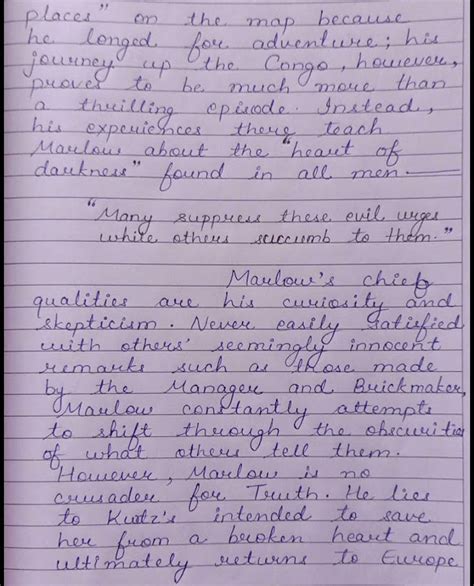 places" on the map because
he longed for adventure; his
journey up the Congo, however,
proves to be much more than
a thrilling episode. Instead,
his experiences there teach
Marlow about the "heart of
darkness" found in all men.
"Many suppress these evil urges
while others succumb to them."
Marlow's chief
qualities are his curiosity and
skepticism. Never easily satisfied
with others' seemingly innocent
remarks such as those made
by the Manager and Brickmaker,
Marlow constantly attempts
to shift through the obscurities
of what others tell them.
However, Marlow is no
crusader for Truth. He lies
to Kurtz's intended to save
her from a broken heart and
ultimately returns to Europe